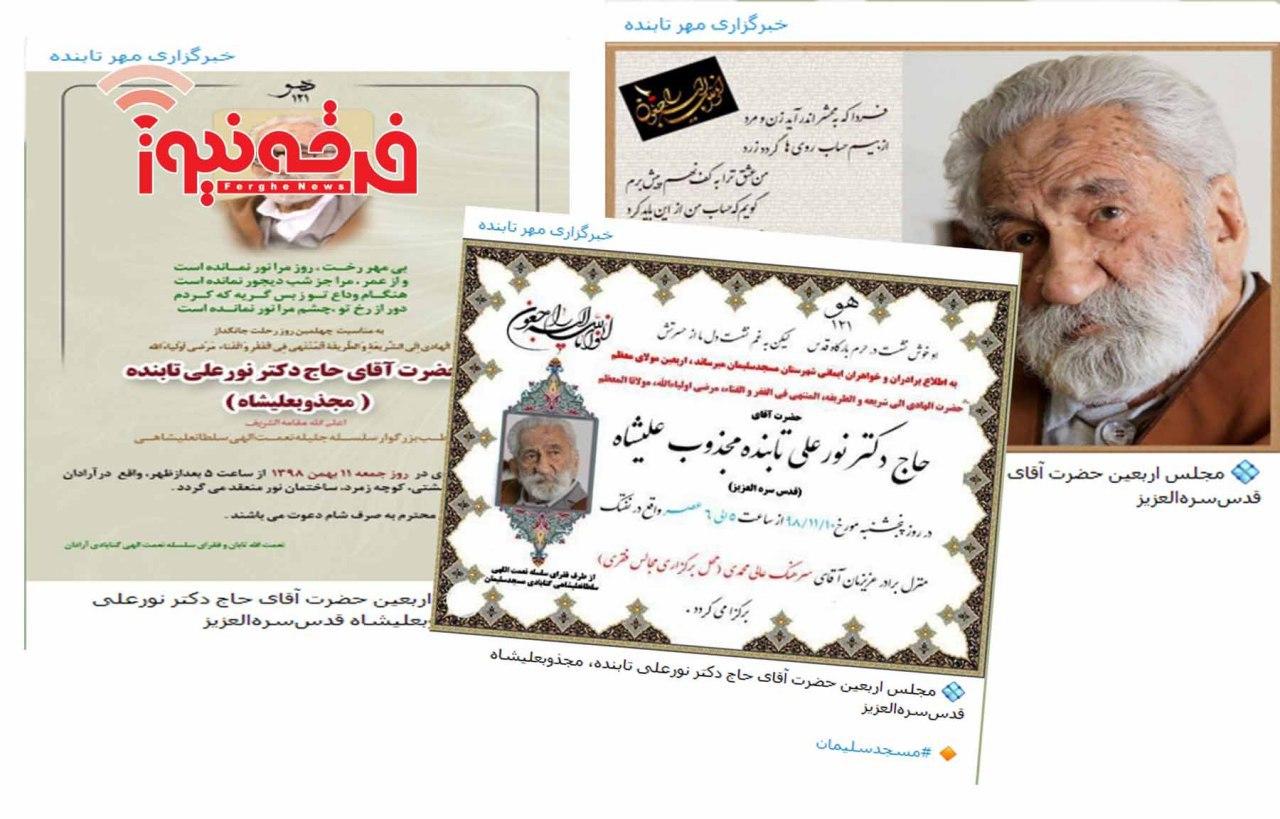 خبرگزاری مهر تابنده
هو
۱۲۱
فرقه نیوز
Ferghe News
بی مهر رخت، روز مرا نور نمانده است
و از عمر، مرا جز شب دیجور نمانده است
هنگام وداع تو ز بس گریه که کردم
دور از رخ تو، چشم مرا نور نمانده است
به مناسبت چهلمین روز رحلت جانگداز
الهادی إلی الشریعه و الطریقه المنتهی فی الفقر و الفناء، مرضی اولیاء الله
حضرت آقای حاج دکتر نورعلی تابنده
( مجذوبعلیشاه )
اعلی الله مقامه الشریف
بزرگوار سلسله جلیله نعمت الهی سلطانعلیشاهی
در روز جمعه ۱۱ بهمن ۱۳۹۸ از ساعت ۵ بعدازظهر، واقع در آرادان
کوچه زمرد، ساختمان نور منعقد می گردد.
محترم به صرف شام دعوت می باشند.
نعمت الله تابان و فقرای سلسله نعمت الهی گنابادی آرادان
اربعین حضرت آقای حاج دکتر نورعلی
قدس‌سره‌العزیز
خبرگزاری مهر تابنده
انا لله و انا الیه راجعون
فردا که به محشر اندر آید زن و مرد
از بیم حساب روی ها گردد زرد
من عشق ترا به کف نهم پیش برم
گویم که حساب من از این باید کرد
مجلس اربعین حضرت آقای
قدس‌سره‌العزیز
خبرگزاری مهر تابنده
هو
۱۲۱
انا لله و انا الیه راجعون
او خوش نشست در حرم بارگاه قدس لیکن به غم نشست دل ما ز حسرتش
به اطلاع برادران و خواهران ایمانی شهرستان مسجدسلیمان میرساند، اربعین مولای معظم
حضرت الهادی الی شریعه و الطریقه، المنتهی فی الفقر و الفناء، مرضی اولیاءالله، مولانا المعظم
حضرت آقای
حاج دکتر نور علی تابنده مجذوب علیشاه
(قدس سره العزیز)
در روز پنجشنبه مورخ ۹۸/۱۱/۱۰ از ساعت ۵ الی ۶ عصر واقع در نفتک
منزل برادر عزیزمان آقای سرهنگ عالی محمدی (محل برگزاری مجالس فقری)
برگزار می گردد.
از طرف فقرای سلسله نعمت اللهی
سلطانعلیشاهی گنابادی مسجدسلیمان
مجلس اربعین حضرت آقای حاج دکتر نورعلی تابنده، مجذوبعلیشاه
قدس‌سره‌العزیز
#مسجدسلیمان